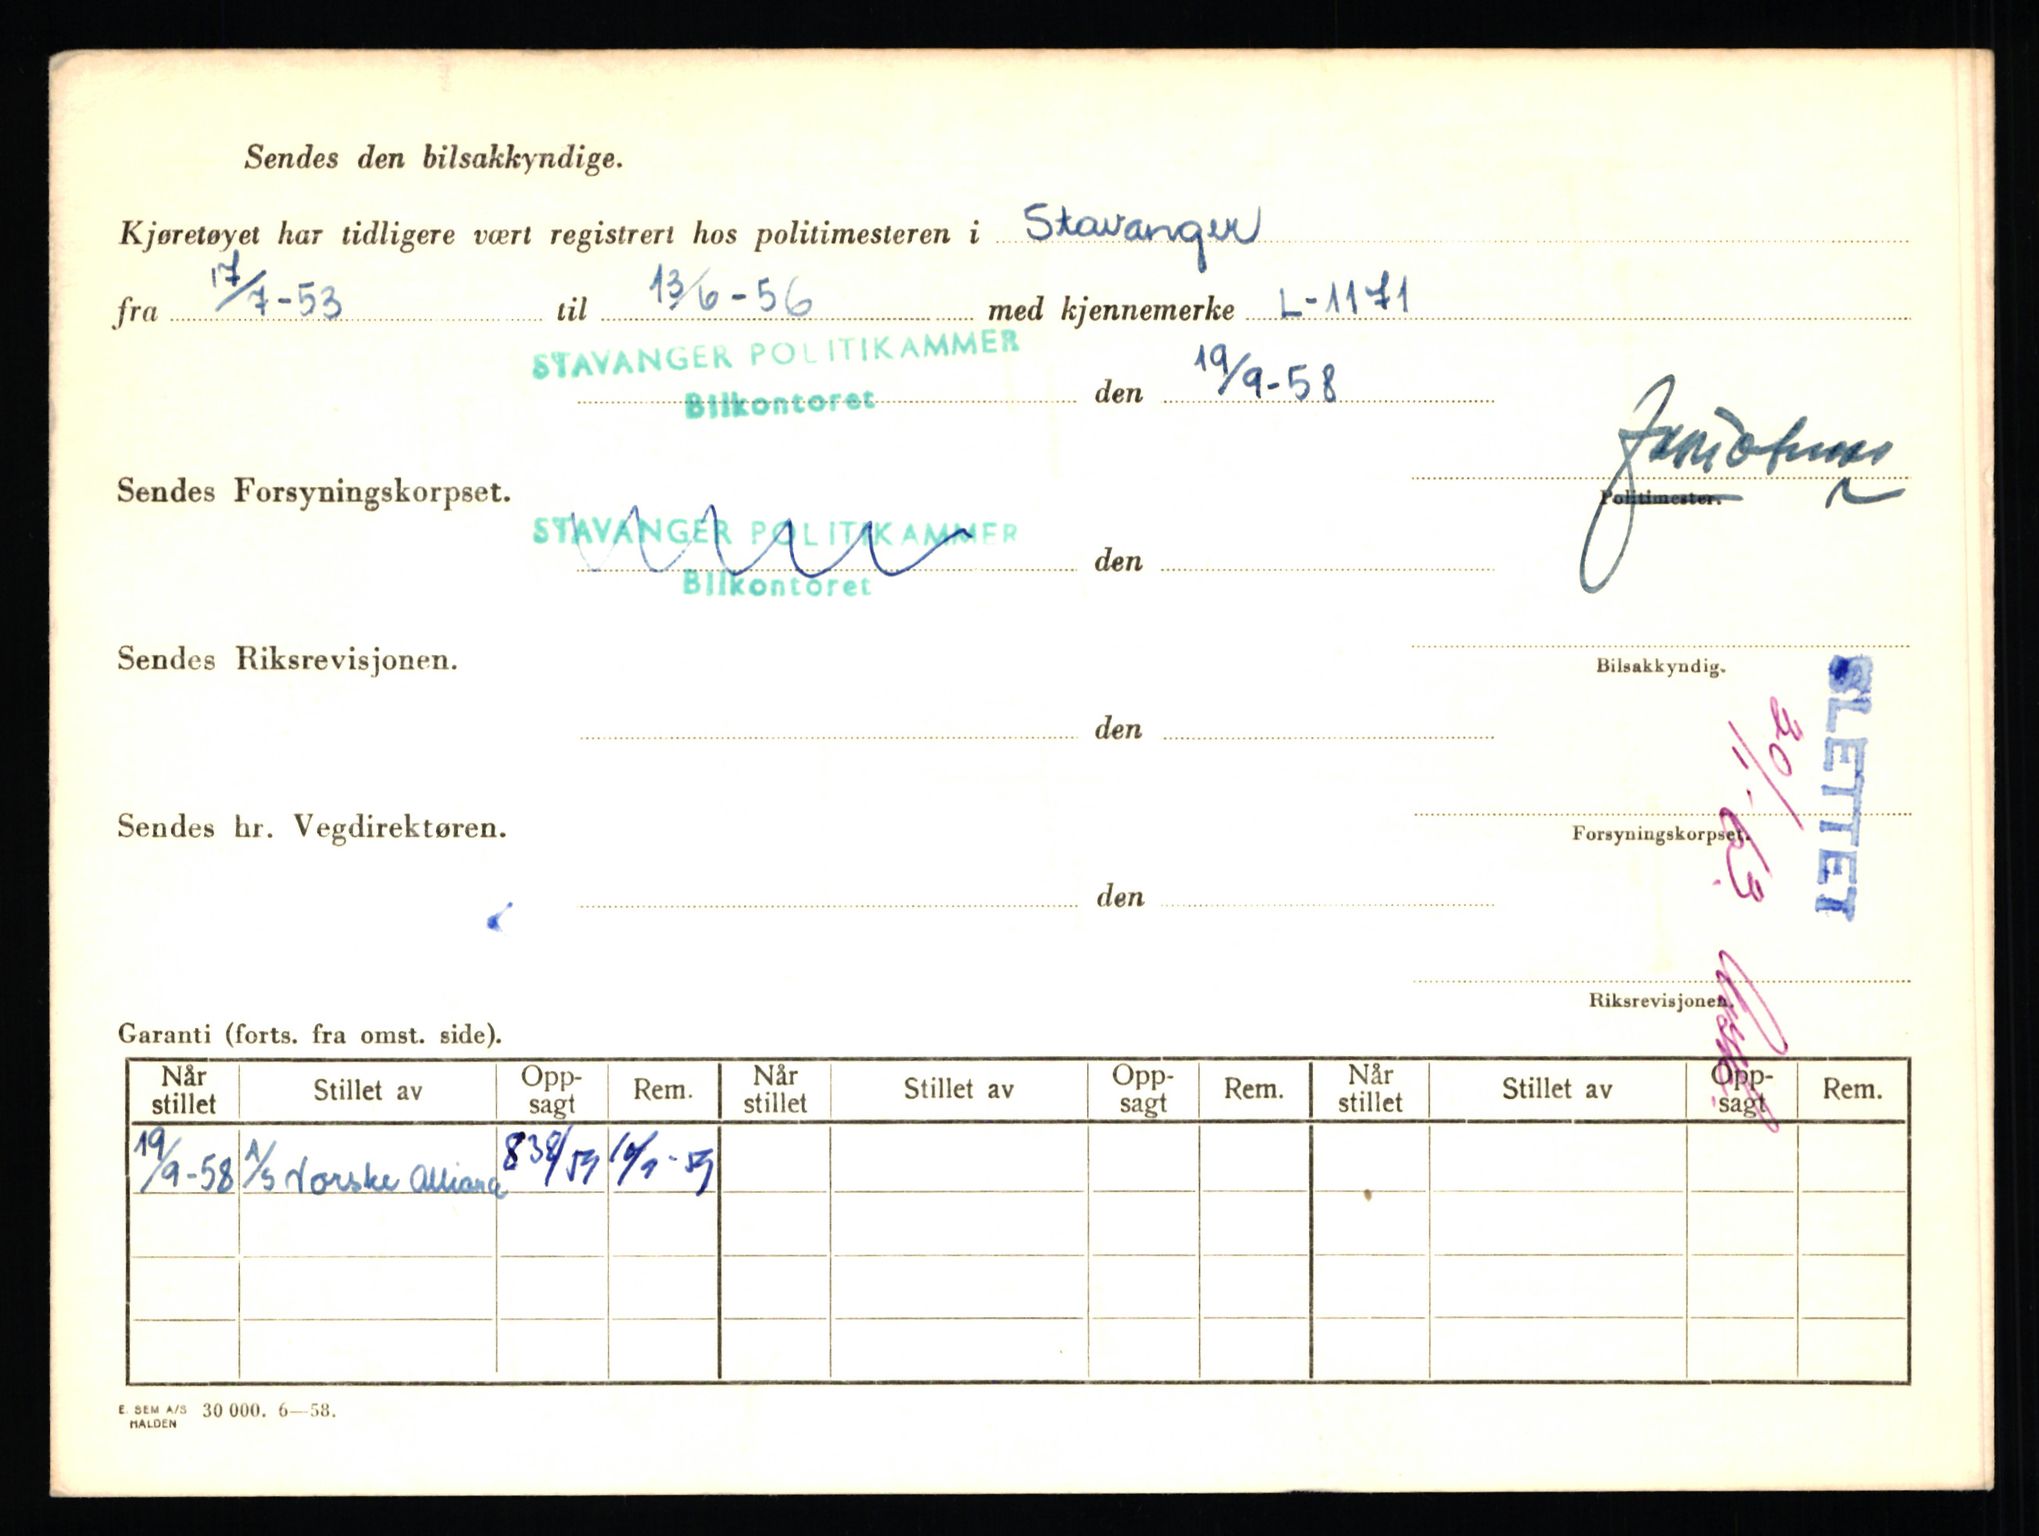 Sendes den bilsakkyndige.
Kjøretøyet har tidligere vært registrert hos politimesteren i Stavanger
fra 17/7-53 til 13/6-56 med kjennemerke L-1171
STAVANGER POLITIKAMMER
Bilkontoret den 19/9-58
Politimester.
Sendes Forsyningskorpset.
STAVANGER POLITIKAMMER
Bilkontoret den
Bilsakkyndig.
Sendes Riksrevisjonen.
SLETTET
den
Forsyningskorpset.
Sendes hr. Vegdirektøren.
den
Riksrevisjonen.
Garanti (forts. fra omst. side).
Når stillet Stillet av Opp-sagt Rem. Når stillet Stillet av Opp-sagt Rem. Når stillet Stillet av Opp-sagt Rem.
19/9-58 A/S Norske Alliance 838/59 10/1-59
E. SEM A/S HALDEN 30 000. 6—58.